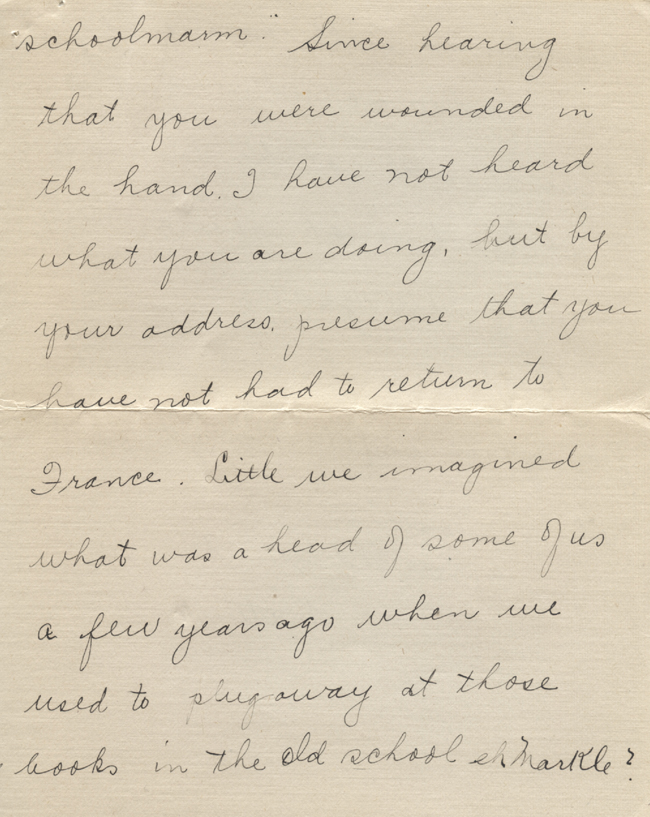 "schoolmarm." Since hearing
that you were wounded in
the hand. I have not heard
what you are doing, but by
your address. presume that you
have not had to return to
France. Little we imagined
what was a head of some of us
a few years ago when we
used to plug away at those
books in the old school eh Markle?